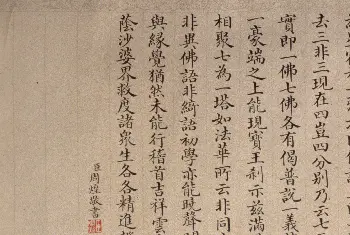 去三非三現在四豈四分别乃云七
實即一佛七佛各有偈普說一義
一豪端之上能現寶王刹示兹滿
相聚七為一塔如法華所云非同
非異佛語非綺語初學亦能曉聲聞
與緣覺猶然未能行稽首吉祥雲
蔭沙婆界救度諸衆生各各精進
臣周煌敬書